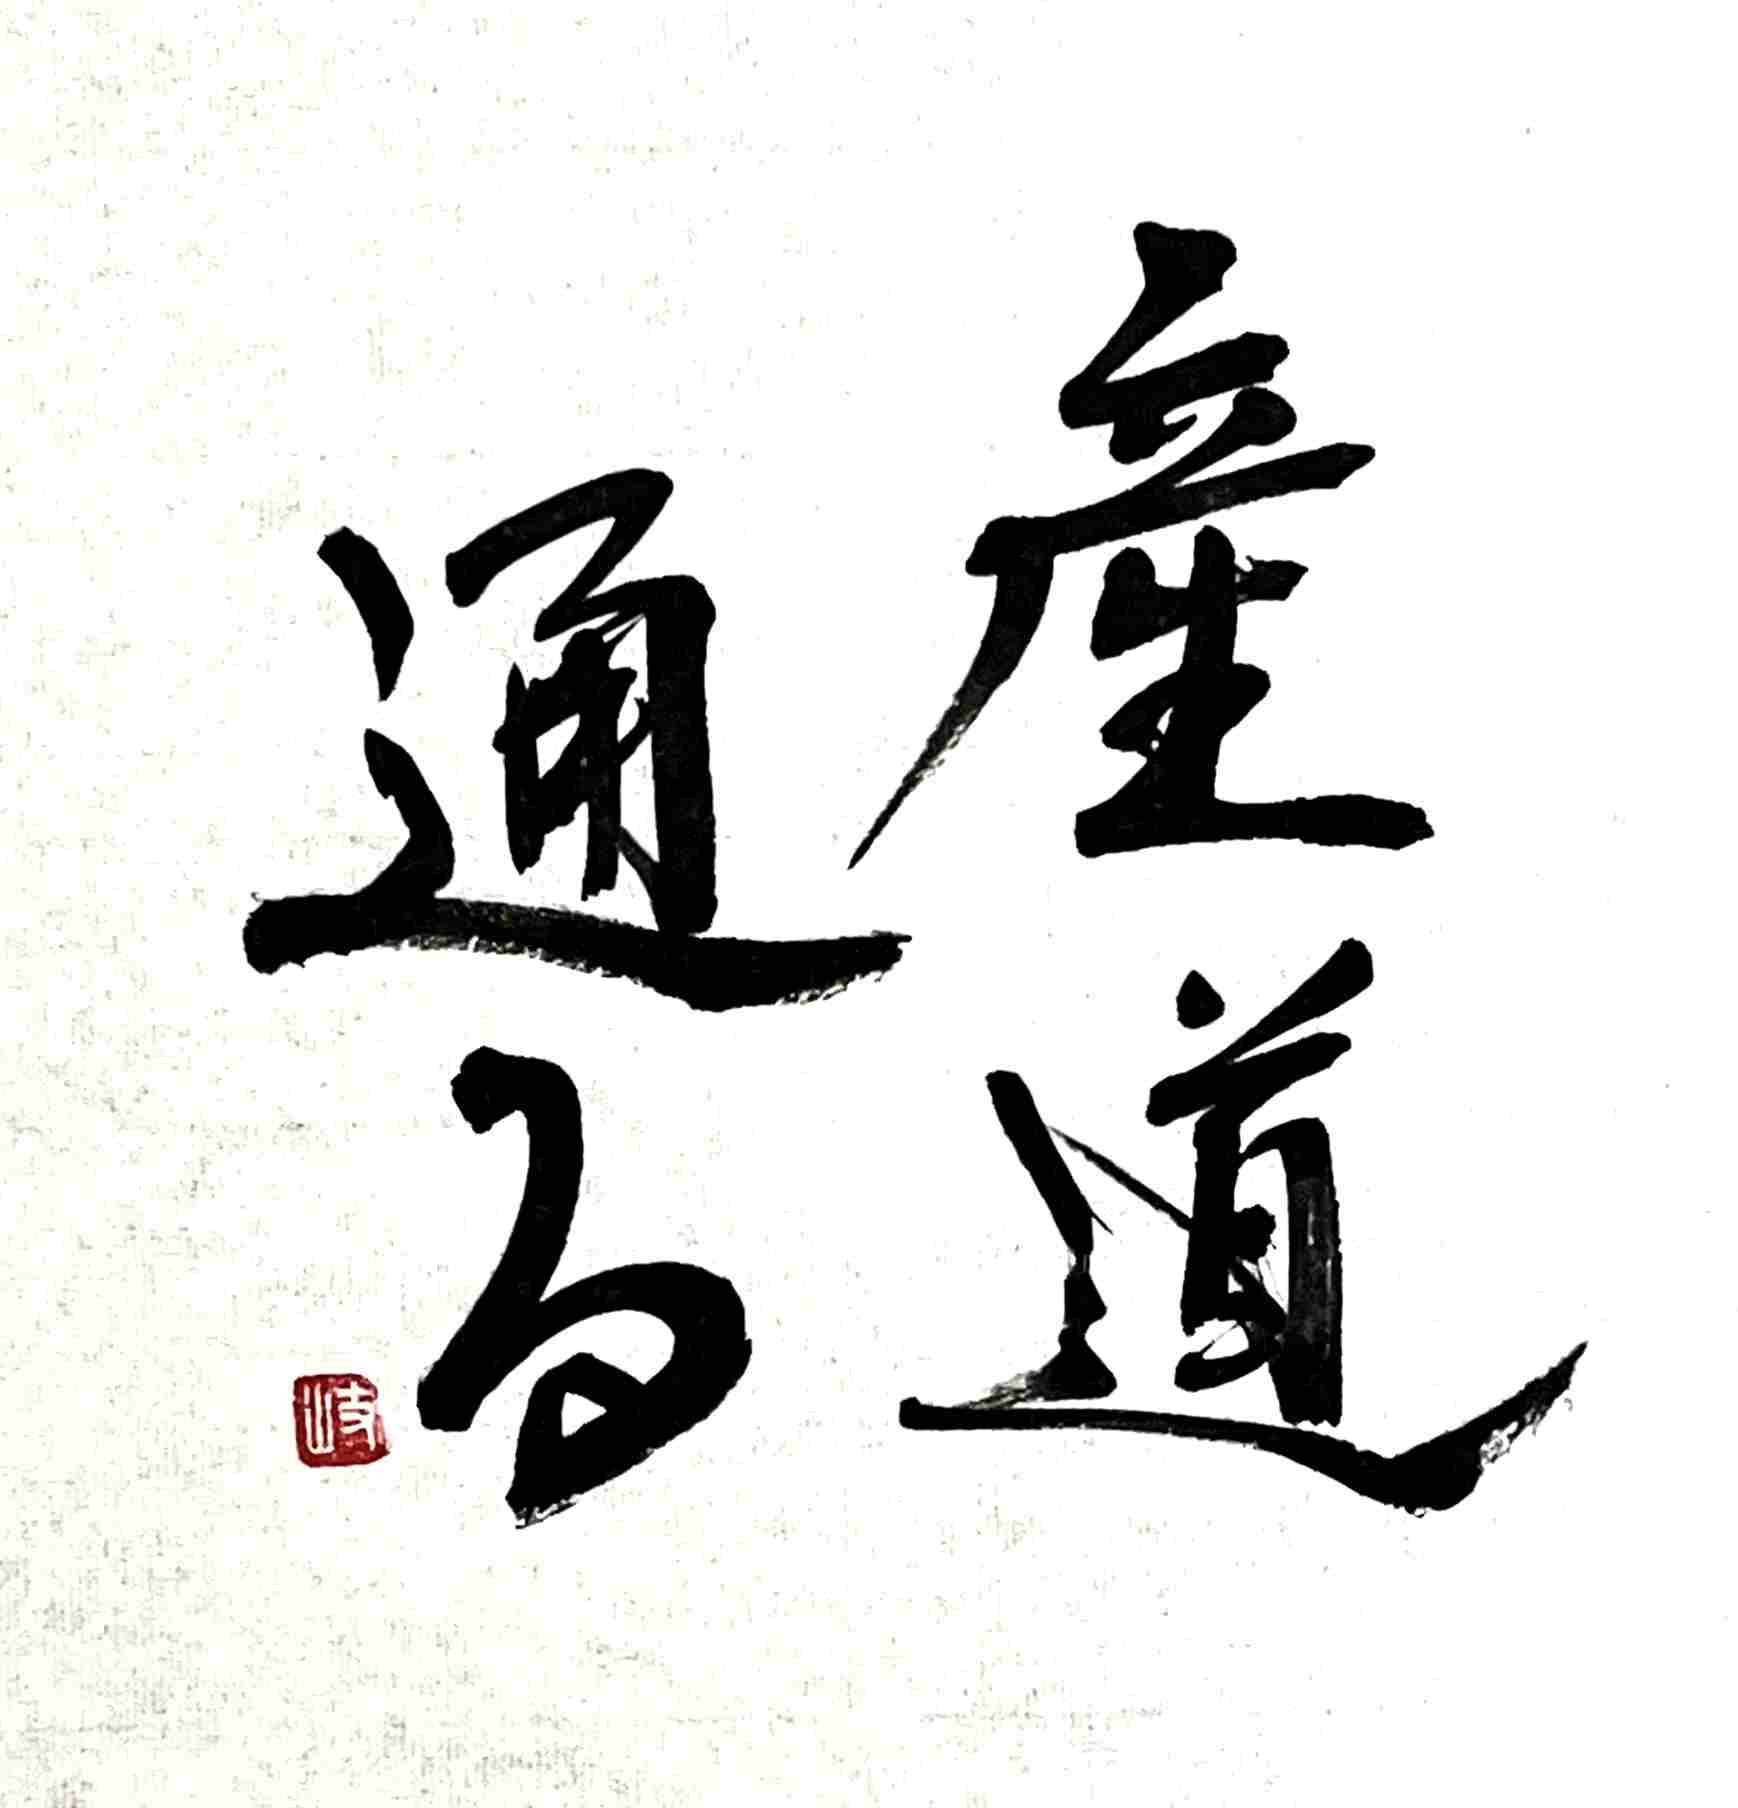 産道
通る
岐